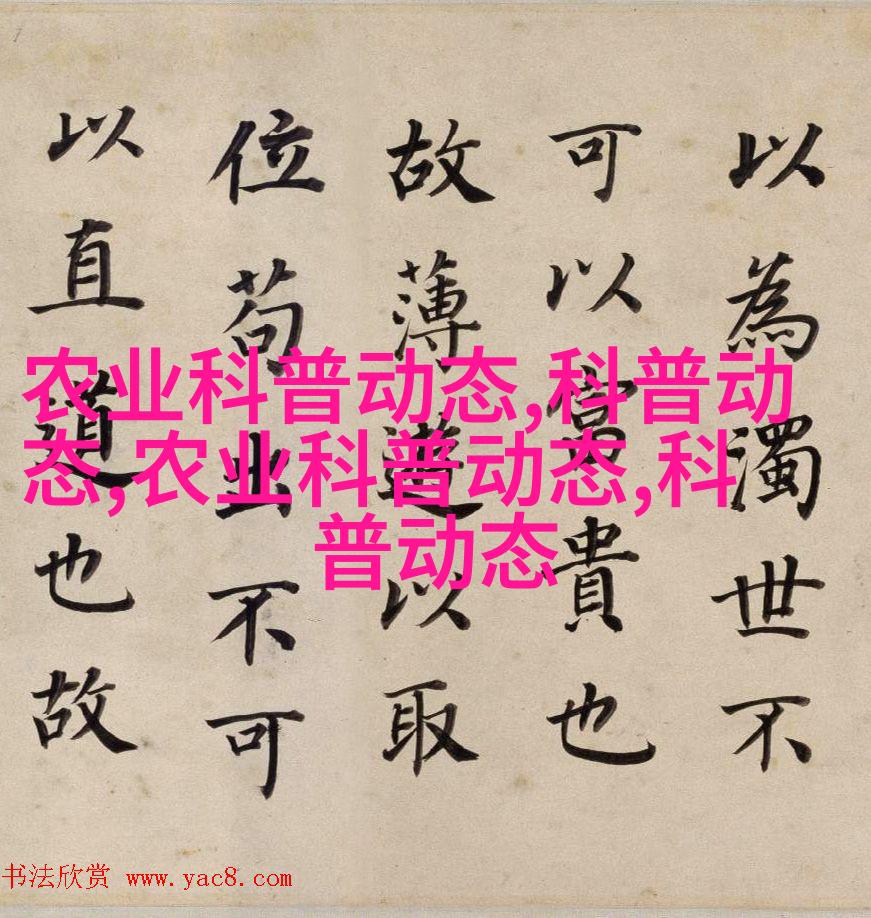 以為濁世不
可以富貴也
故薄遊以取
位苟出不可
以直道也故
农业科普动态,科普动
态,农业科普动态,科
普动态
书法欣赏 www.yac8.com